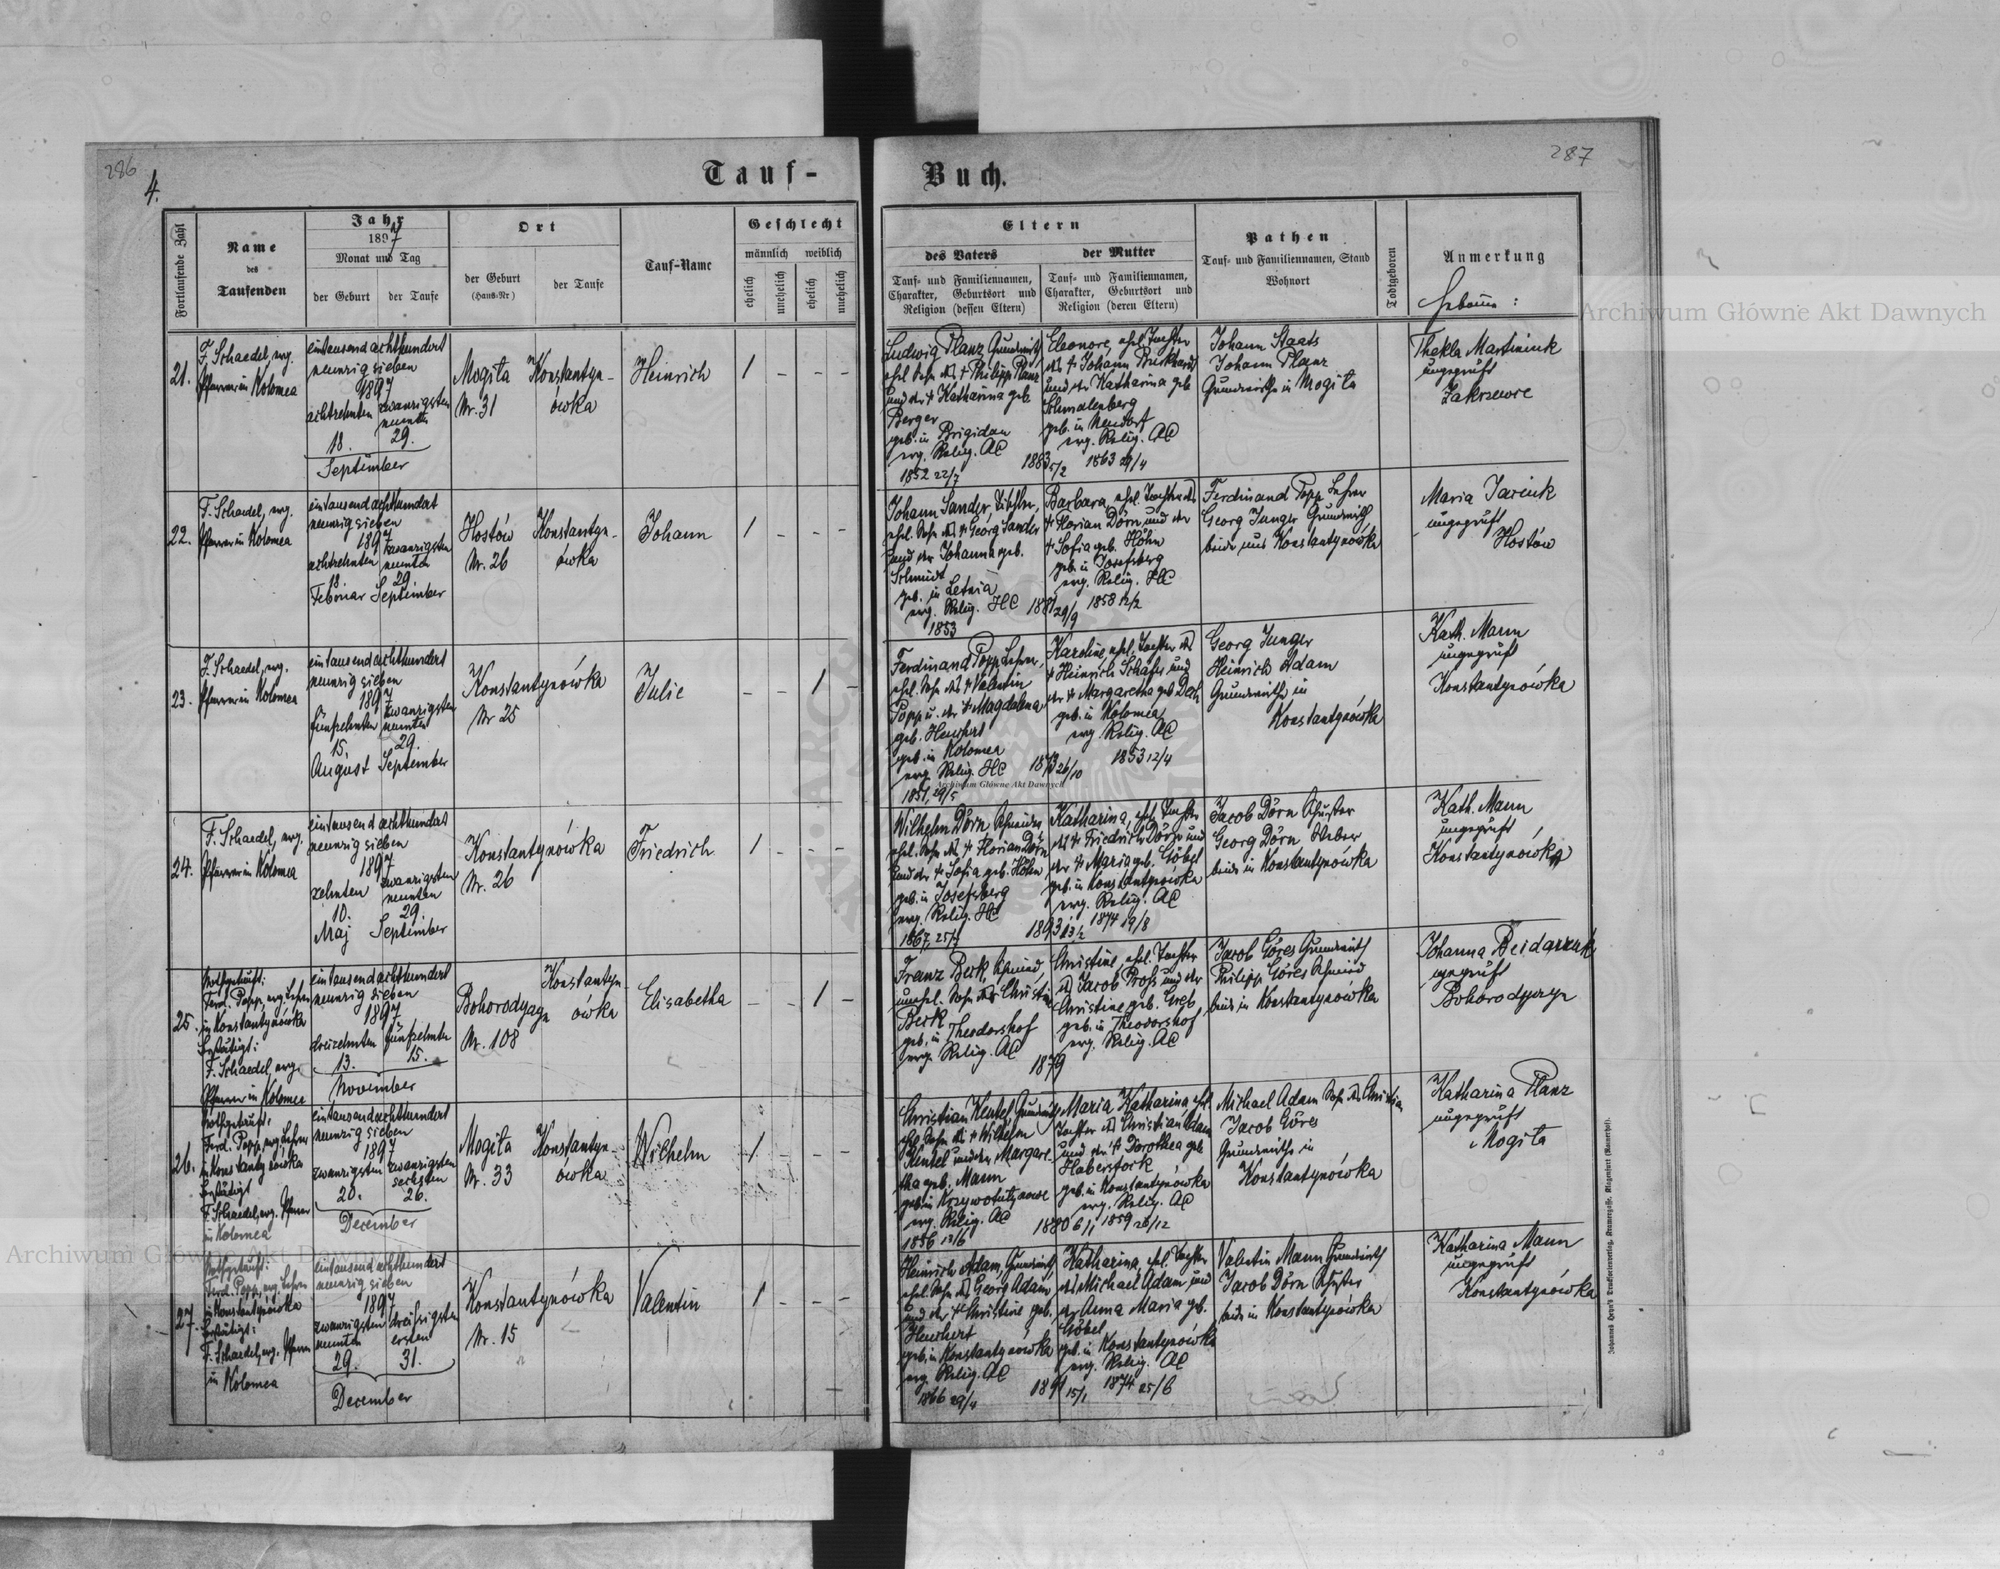 286
4.
Tauf-
Buch.
287
Fortlaufende Zahl
Name
des
Taufenden
Jahr
1897
Monat und Tag
der Geburt
der Taufe
Ort
der Geburt
(Haus-Nr.)
der Taufe
Tauf-Name
Geschlecht
männlich
weiblich
ehelich
unehelich
ehelich
unehelich
Eltern
des Vaters
Tauf- und Familiennamen,
Charakter, Geburtsort und
Religion (dessen Eltern)
der Mutter
Tauf- und Familiennamen,
Charakter, Geburtsort und
Religion (deren Eltern)
Pathen
Tauf- und Familiennamen, Stand
Wohnort
Todtgeboren
Anmerkung
21.
F. Schaedel, evg.
Pfarrer in Kolomea
eintausend achthundert
neunzig sieben
1897
achtzehnten
18.
zwanzigsten
neunten
29.
September
Mogiła
Nr. 31
Konstantyn-
ówka
Heinrich
1 - - -
Ludwig Planz Grundwirth
ehel. Sohn des † Philipp Planz
und der † Katharina geb.
Berger
geb. in Brigidau
evg. Relig. AC
1852 22/7
1883 5/2
Eleonore, ehel. Tochter
des † Johann Burkhardt
und der Katharina geb.
Schmalenberg
geb. in Neudorf
evg. Relig. AC
1863 29/4
Johann Staats
Johann Planz
Grundwirthe in Mogiła
Thekla Martiniuk
ungeprüft
22.
F. Schaedel, evg.
Pfarrer in Kolomea
eintausend achthundert
neunzig sieben
1897
achtzehnten
18.
Februar
zwanzigsten
neunten
29.
September
Hostów
Nr. 26
Konstantyn-
ówka
Johann
1 - - -
Johann Sander, Tischler,
ehel. Sohn des † Georg Sander
und der Johanna geb.
Schmidt
geb. in Letnia
evg. Relig. HC
1853
1881 29/9
Barbara, ehel. Tochter des
† Florian Dörn und der
† Sofia geb. Höhn
geb. in Josefsberg
evg. Relig. HC
1858 12/2
Ferdinand Popp Lehrer
Georg Junger Grundwirth
beide aus Konstantynówka
Maria
ungeprüft
Hostów
23.
F. Schaedel, evg.
Pfarrer in Kolomea
eintausend achthundert
neunzig sieben
1897
fünfzehnten
15.
August
zwanzigsten
neunten
29.
September
Konstantynówka
Nr 25
Julie
- - 1 -
Ferdinand Popp Lehrer,
ehel. Sohn des † Valentin
Popp u. der † Magdalena
geb. Heuchert
geb. in Kolomea
evg. Relig. HC
1851, 29/5
1873 26/10
Karoline, ehel. Tochter des
† Heinrich Schäfer und
der † Margaretha geb.
geb. in Kolomea
evg. Relig. AC
1853 12/4
Georg Junger
Heinrich Adam
Grundwirthe in
Konstantynówka
Kath. Mann
ungeprüft
Konstantynówka
24.
F. Schaedel, evg.
Pfarrer in Kolomea
eintausend achthundert
neunzig sieben
1897
zehnten
10.
Maj
zwanzigsten
neunten
29.
September
Konstantynówka
Nr. 26
Friedrich
1 - - -
Wilhelm Dörn Schneider
ehel. Sohn des † Florian Dörn
und der † Sofia geb. Höhn
geb. in Josefsberg
evg. Relig. HC
1867, 25/7
1893 13/2
Katharina, ehel. Tochter
des † Friedrich Dörn und
der † Maria geb. Göbel
geb. in Konstantynówka
evg. Relig. AC
1874 19/8
Jacob Dörn Schuster
Georg Dörn Weber
beide in Konstantynówka
Kath. Mann
ungeprüft
Konstantynówka
25.
Nothgetauft:
Ferd. Popp, evg. Lehrer
in Konstantynówka
bestätigt:
F. Schaedel, evg.
Pfarrer in Kolomea
eintausend achthundert
neunzig sieben
1897
dreizehnten
13.
fünfzehnten
15.
November
Nr. 108
Konstantyn-
ówka
Elisabetha
- - 1 -
Franz Berk, Schmied,
unehel. Sohn der Christine
Berk
geb. in Theodorshof
evg. Relig. AC
1879
Christine, ehel. Tochter
des Jacob Profs und der
Christine geb. Greb
geb. in Theodorshof
evg. Relig. AC
Jacob Göres Grundwirth
Philipp Göres Schmied
beide in Konstantynówka
Johanna
ungeprüft
Bohorodyczyn
26.
Nothgetauft:
Ferd. Popp, evg. Lehrer
in Konstantynówka
bestätigt
F. Schaedel, evg. Pfarrer
in Kolomea
eintausend achthundert
neunzig sieben
1897
zwanzigsten
20.
zwanzigsten
sechsten
26.
December
Mogiła
Nr. 33
Konstantyn-
ówka
Wilhelm
1 - - -
Christian Keutel, Grundwirth
ehel. Sohn des † Wilhelm
Keutel und der Margare-
tha geb. Mann
geb. in Krzywotułynowe
evg. Relig. AC
1856 13/6
1880 6/11
Maria Katharina ehel.
Tochter des Christian Adam
und der † Dorothea geb.
Haberstock
geb. in Konstantynówka
evg. Relig. AC
1859 26/12
Michael Adam Sohn des Christian
Jacob Göres
Grundwirthe in
Konstantynówka
Katharina Planz
ungeprüft
Mogiła
27.
Nothgetauft:
Ferd. Popp, evg. Lehrer
in Konstantynówka
bestätigt:
F. Schaedel, evg. Pfarrer
in Kolomea
eintausend achthundert
neunzig sieben
1897
zwanzigsten
neunten
29.
dreißigsten
ersten
31.
December
Konstantynówka
Nr. 15
Valentin
1 - - -
Heinrich Adam, Grundwirth
ehel. Sohn des Georg Adam
und der † Christine geb.
Heuchert
geb. in Konstantynówka
evg. Relig. AC
1866 29/4
1891 15/1
Katharina, ehel. Tochter
des Michael Adam und
der Anna Maria geb.
Göbel
geb. in Konstantynówka
evg. Relig. AC
1874 25/6
Valentin Mann Grundwirth
Jacob Dörn Schuster
beide in Konstantynówka
Katharina Mann
ungeprüft
Konstantynówka
Archiwum Główne Akt Dawnych
Archiwum Główne Akt Dawnych
Archiwum Główne Akt Dawnych